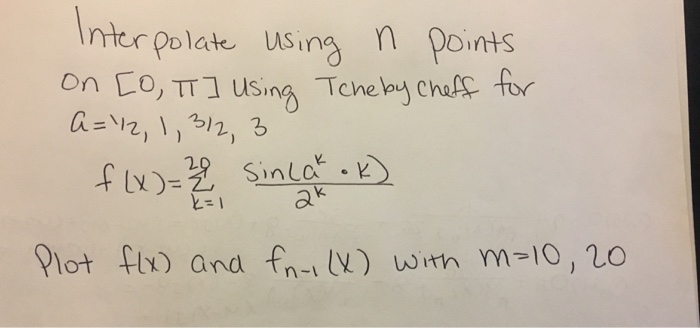 Interpolate using n points
on [0, π] using Tchebycheff for
a = 1/2, 1, 3/2, 3
f(x) = 20 Σ k=1 sin(a^k · k) / 2^k
Plot f(x) and f_{n-1}(x) with m=10, 20